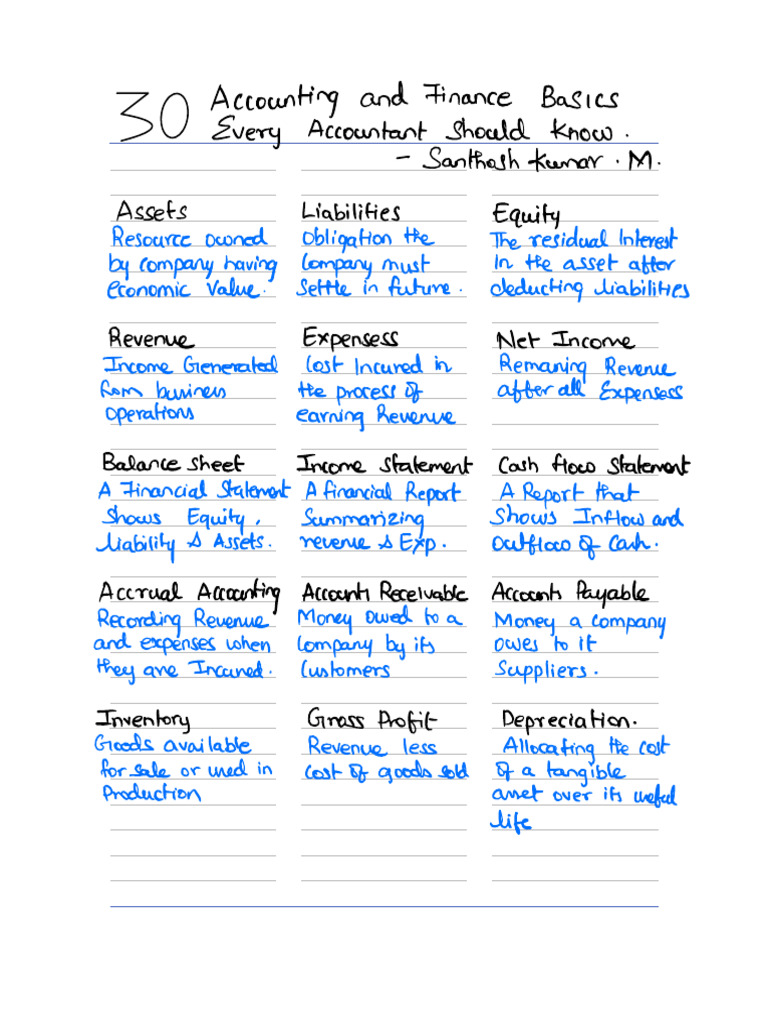 30 Accounting and Finance Basics
Every Accountant Should Know.
- Santhosh Kumar . M.
Assets
Resource owned
by company having
economic value.
Liabilities
Obligation the
Company must
Settle in future.
Equity
The residual Interest
In the asset after
deducting liabilities
Revenue
Income Generated
from business
operations
Expensess
Cost Incured in
the process of
earning Revenue
Net Income
Remaning Revenue
after all Expensess
Balance sheet
A Financial Statement
Shows Equity,
liability & Assets.
Income statement
A financial Report
Summarizing
revenue & Exp.
Cash flow Statement
A Report that
Shows Inflow and
outflow of Cash.
Accrual Accounting
Recording Revenue
and expenses when
they are Incurred.
Accounts Receivable
Money owed to a
Company by its
Customers
Accounts Payable
Money a company
owes to it
Suppliers.
Inventory
Goods available
for sale or used in
Production
Gross Profit
Revenue less
cost of goods sold
Depreciation.
Allocating the cost
of a tangible
asset over its useful
life